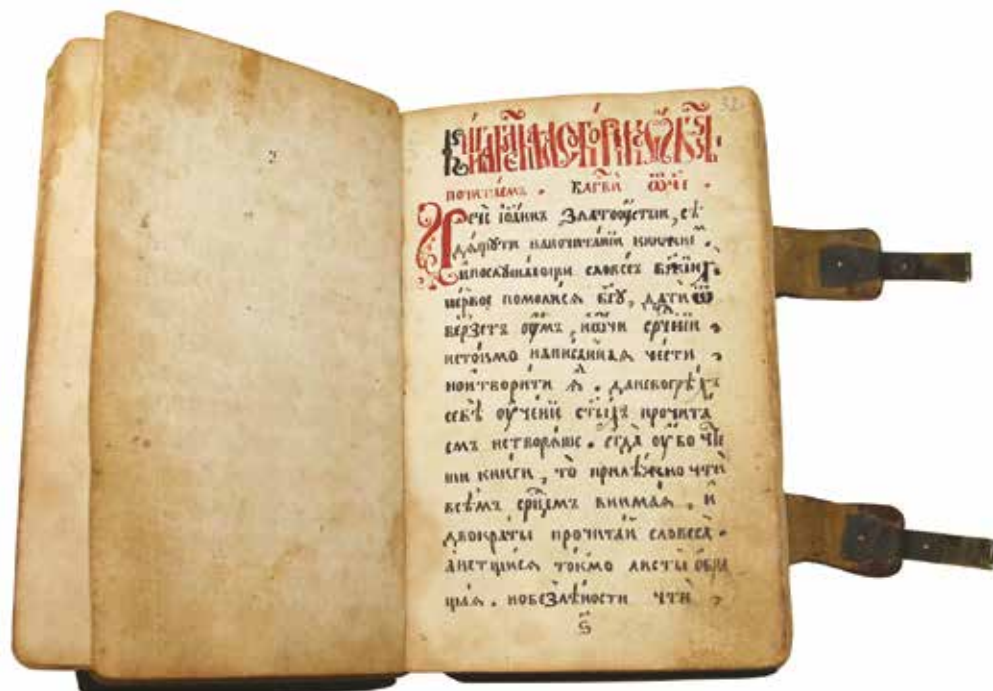 32
почитаемъ . блгви ѿче .
Рече іѡаннъ Златоꙋстый, сѣ
дѧщꙋти напочитанїи книжнѣ .
ипослꙋшающи словесъ бжїи
первое помолисѧ бгꙋ, дати ѿ
верзетъ оумъ, иѡчи срчнїи
нетокмо написаннаѧ чести
ноитворити ѧ . даневогрѣхъ
себѣ оученїе стыхъ прочита
емъ нетворѧще . егда оубо чте
ши книги, то прилѣжно чти
всѣмъ срцемъ внимаѧ, и
двократы прочитай словеса .
анетщисѧ токмо листы ѡбра
щаѧ . нобезлѣности чти
ѕ